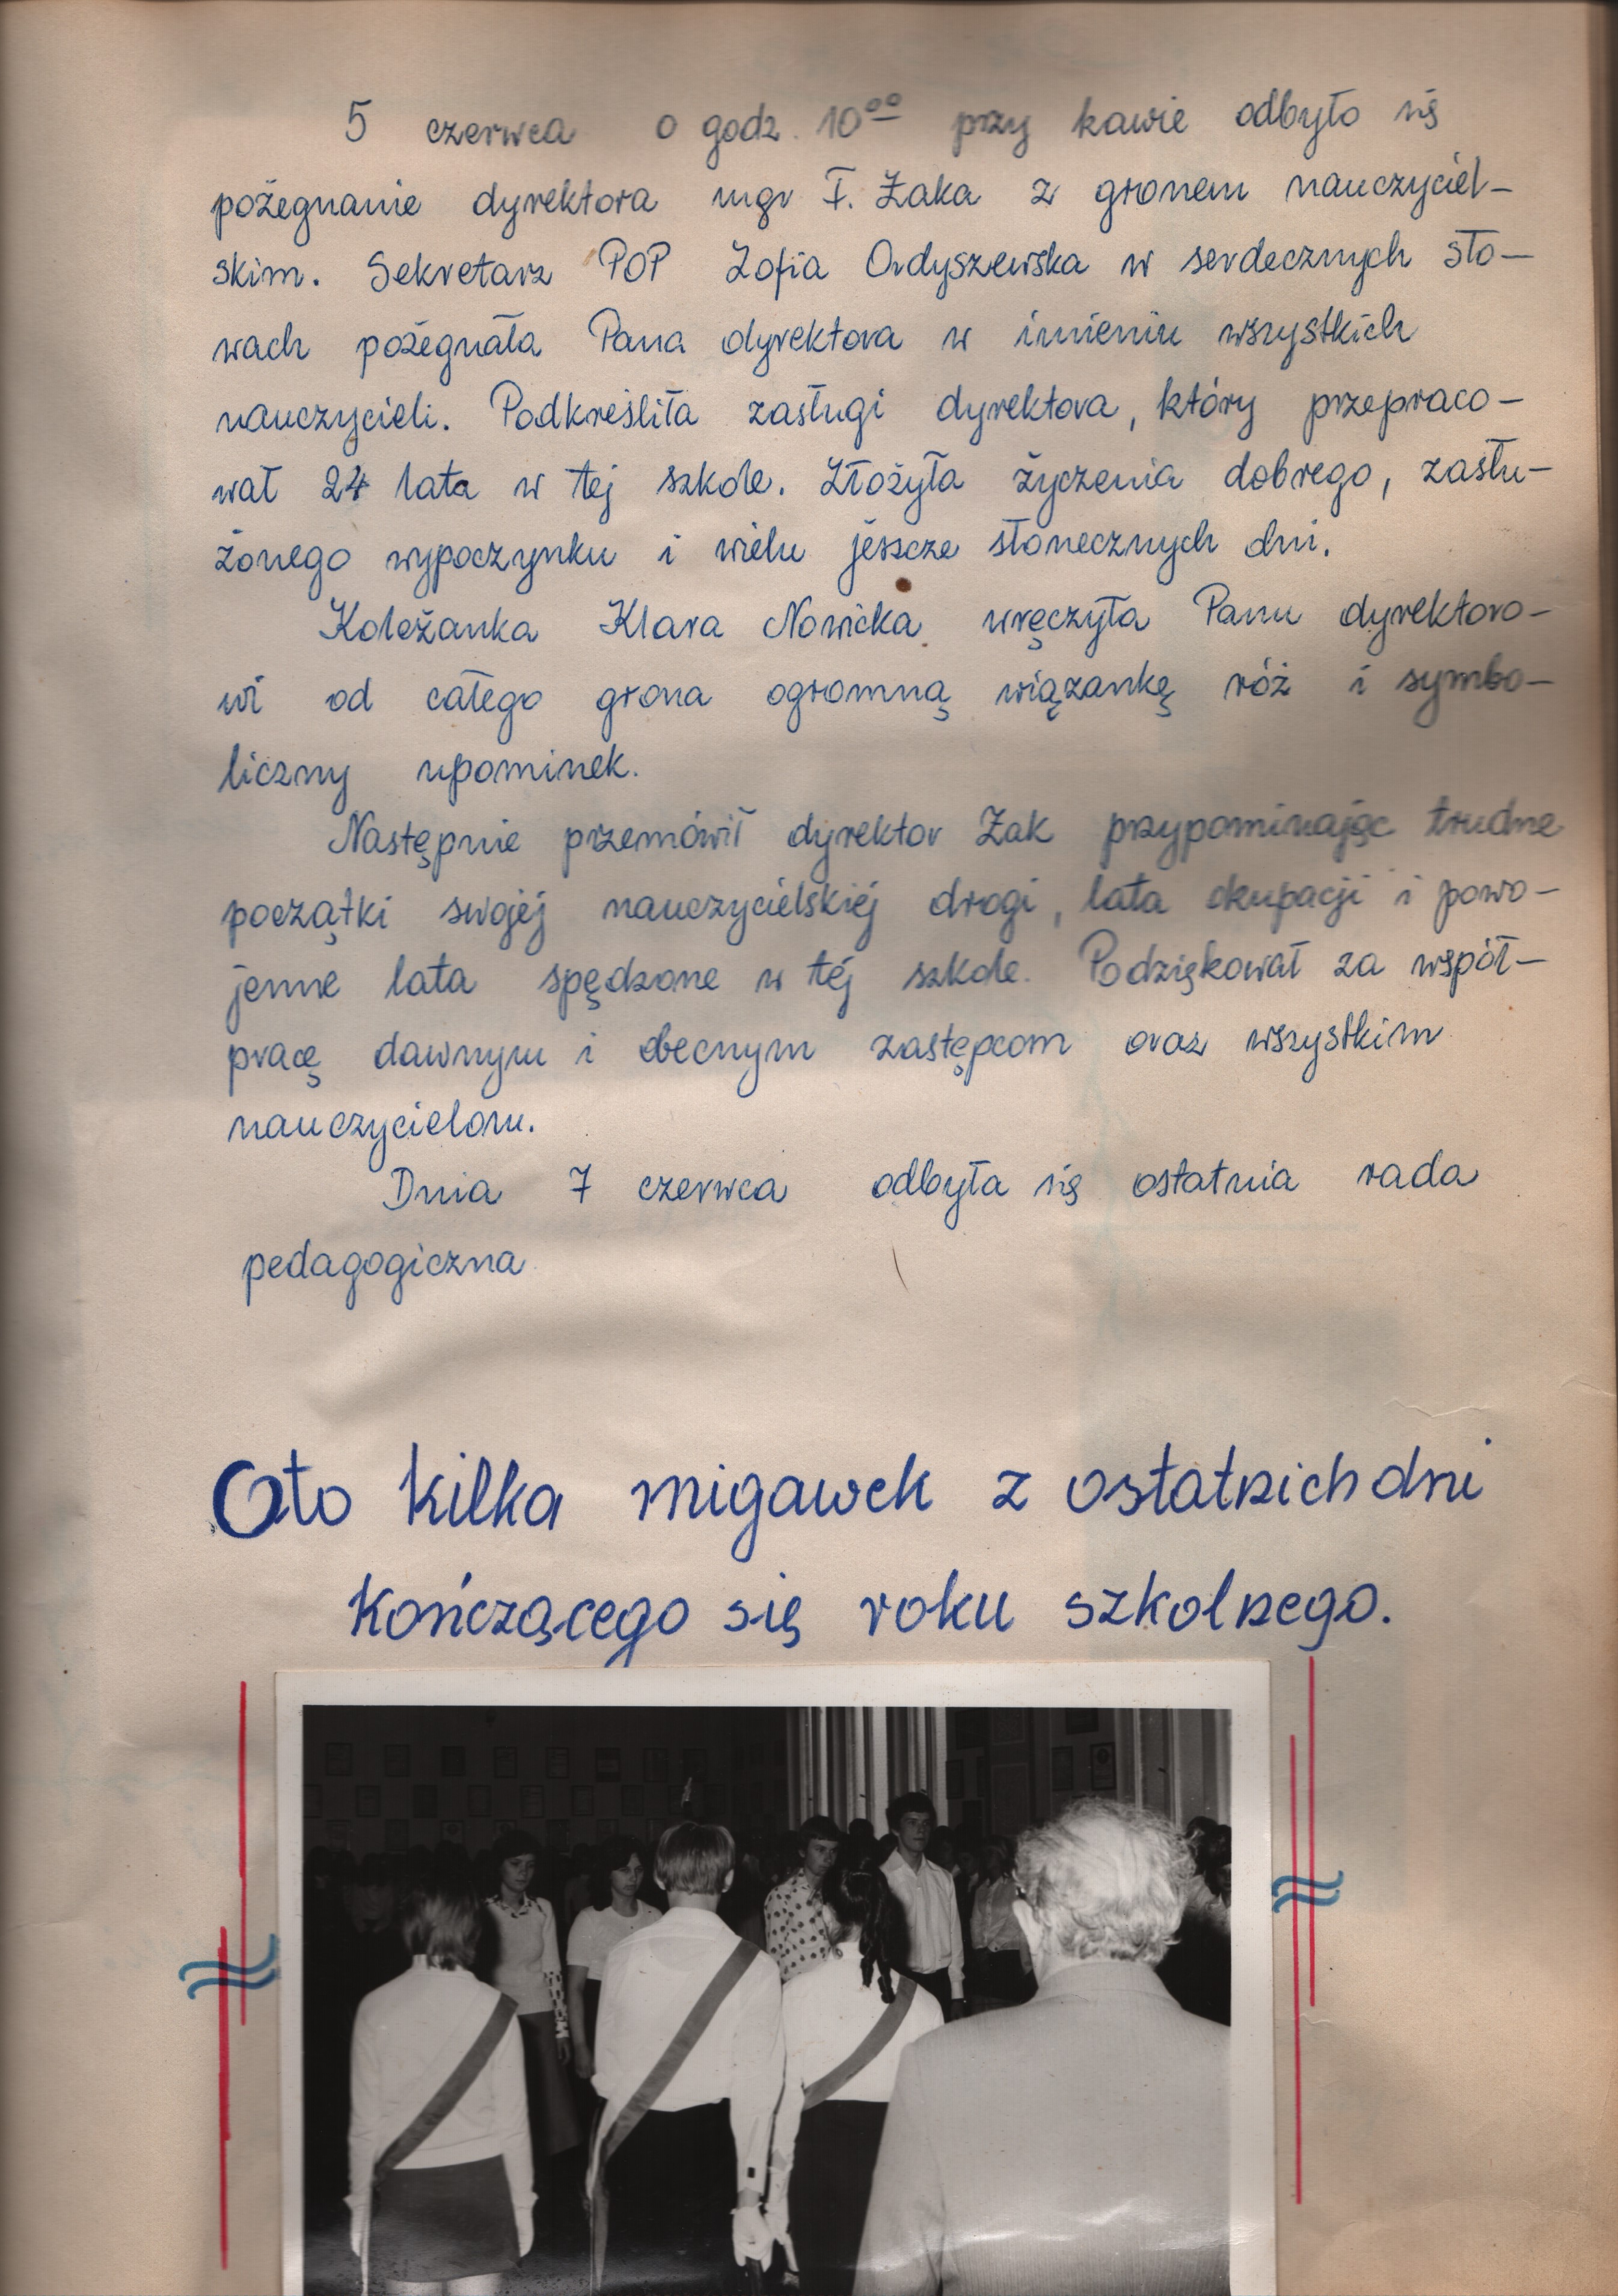 5 czerwca o godz. 10⁰⁰ przy kawie odbyło się
pożegnanie dyrektora mgr F. Żaka z gronem nauczyciel-
skim. Sekretarz POP Zofia Ordyszewska w serdecznych sło-
wach pożegnała Pana dyrektora w imieniu wszystkich
nauczycieli. Podkreśliła zasługi dyrektora, który przepraco-
wał 24 lata w tej szkole. Złożyła życzenia dobrego, zasłu-
żonego wypoczynku i wielu jeszcze słonecznych dni.
Koleżanka Klara Nowicka wręczyła Panu dyrektoro-
wi od całego grona ogromną wiązankę róż i symbo-
liczny upominek.
Następnie przemówił dyrektor Żak przypominając trudne
początki swojej nauczycielskiej drogi, lata okupacji i powo-
jenne lata spędzone w tej szkole. Podziękował za współ-
pracę dawnym i obecnym zastępcom oraz wszystkim
nauczycielom.
Dnia 7 czerwca odbyła się ostatnia rada
pedagogiczna
Oto kilka migawek z ostatnich dni
kończącego się roku szkolnego.